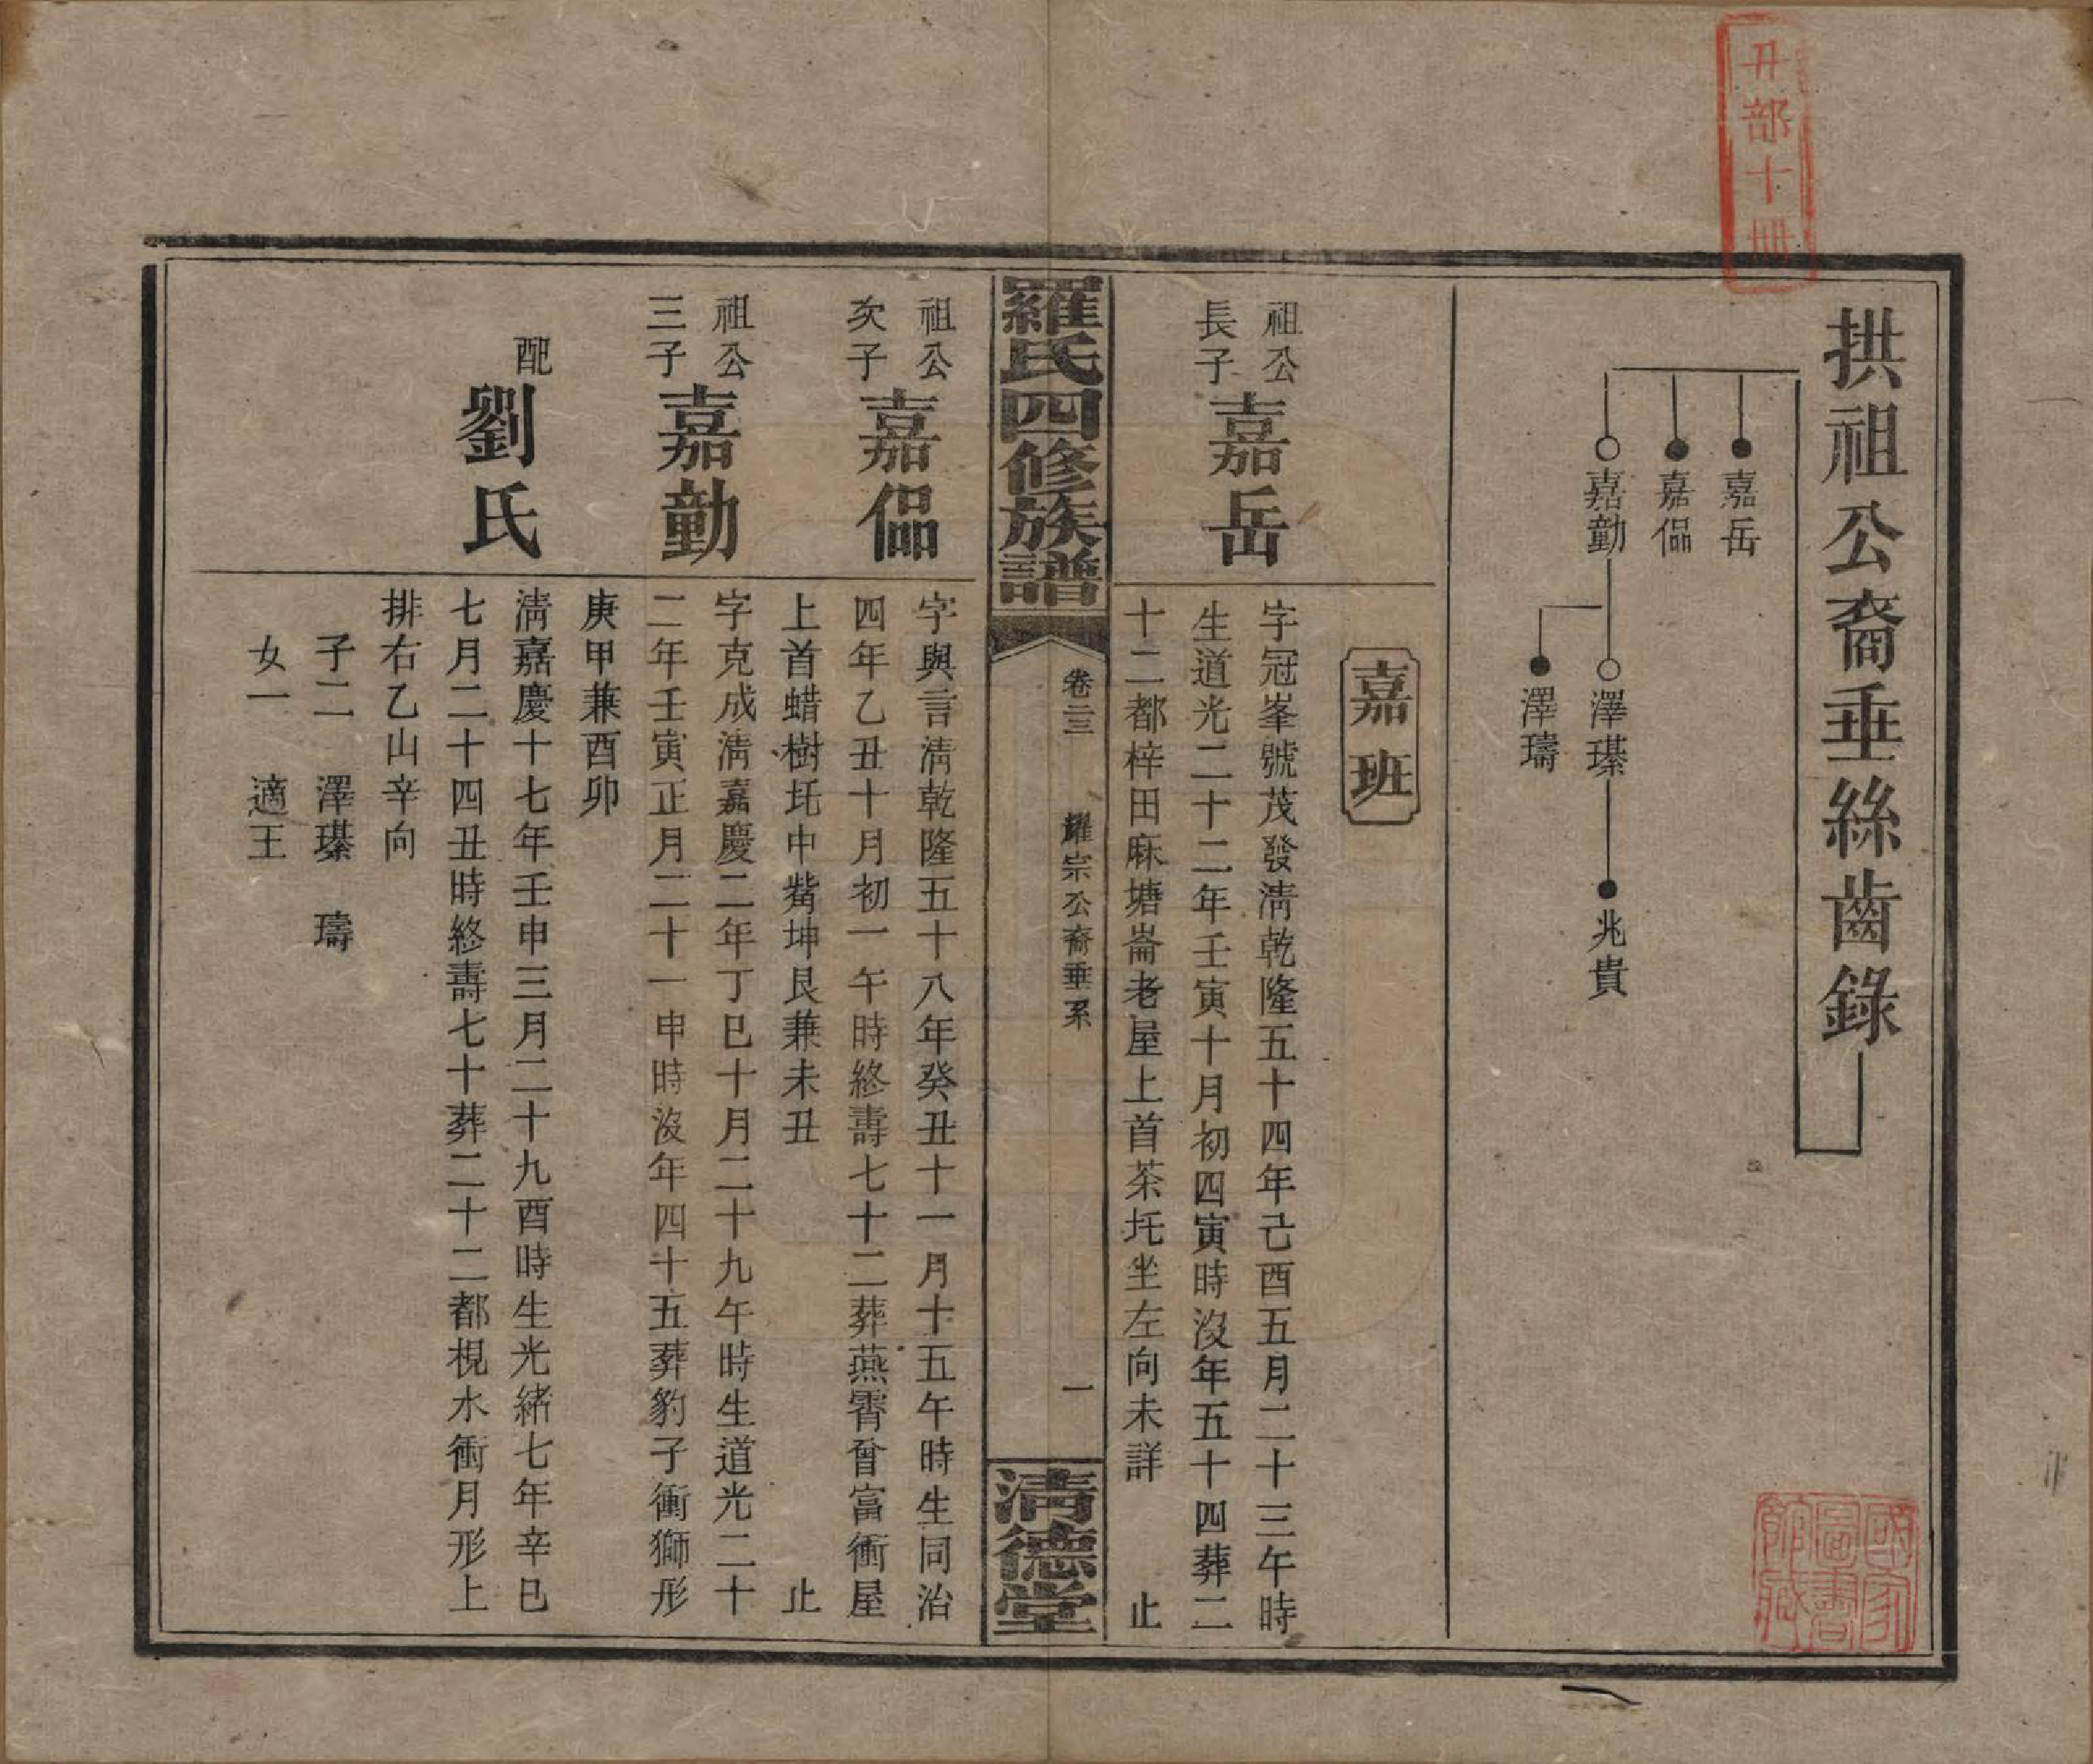 丑部十冊
拱祖公裔垂絲齒錄
嘉岳
嘉偘
嘉勤
澤瑧
兆貴
澤璹
國家圖書館藏
嘉班
祖公
長子
嘉岳
字冠峯號茂發淸乾隆五十四年己酉五月二十三午時
生道光二十二年壬寅十月初四寅時沒年五十四葬二
十二都梓田麻塘崙老屋上首茶圫坐左向未詳 止
羅氏四修族譜
卷二三
耀宗公裔垂系
一
淸德堂
祖公
次子
嘉偘
字與言淸乾隆五十八年癸丑十一月十五午時生同治
四年乙丑十月初一午時終壽七十二葬燕霄曾富衝屋
上首蜡樹圫中嘴坤艮兼未丑 止
祖公
三子
嘉勤
字克成淸嘉慶二年丁巳十月二十九午時生道光二十
二年壬寅正月二十一申時沒年四十五葬豹子衝獅形
庚甲兼酉卯
配
劉氏
淸嘉慶十七年壬申三月二十九酉時生光緒七年辛巳
七月二十四丑時終壽七十葬二十二都梘水衝月形上
排右乙山辛向
子二 澤瑧 璹
女一 適王